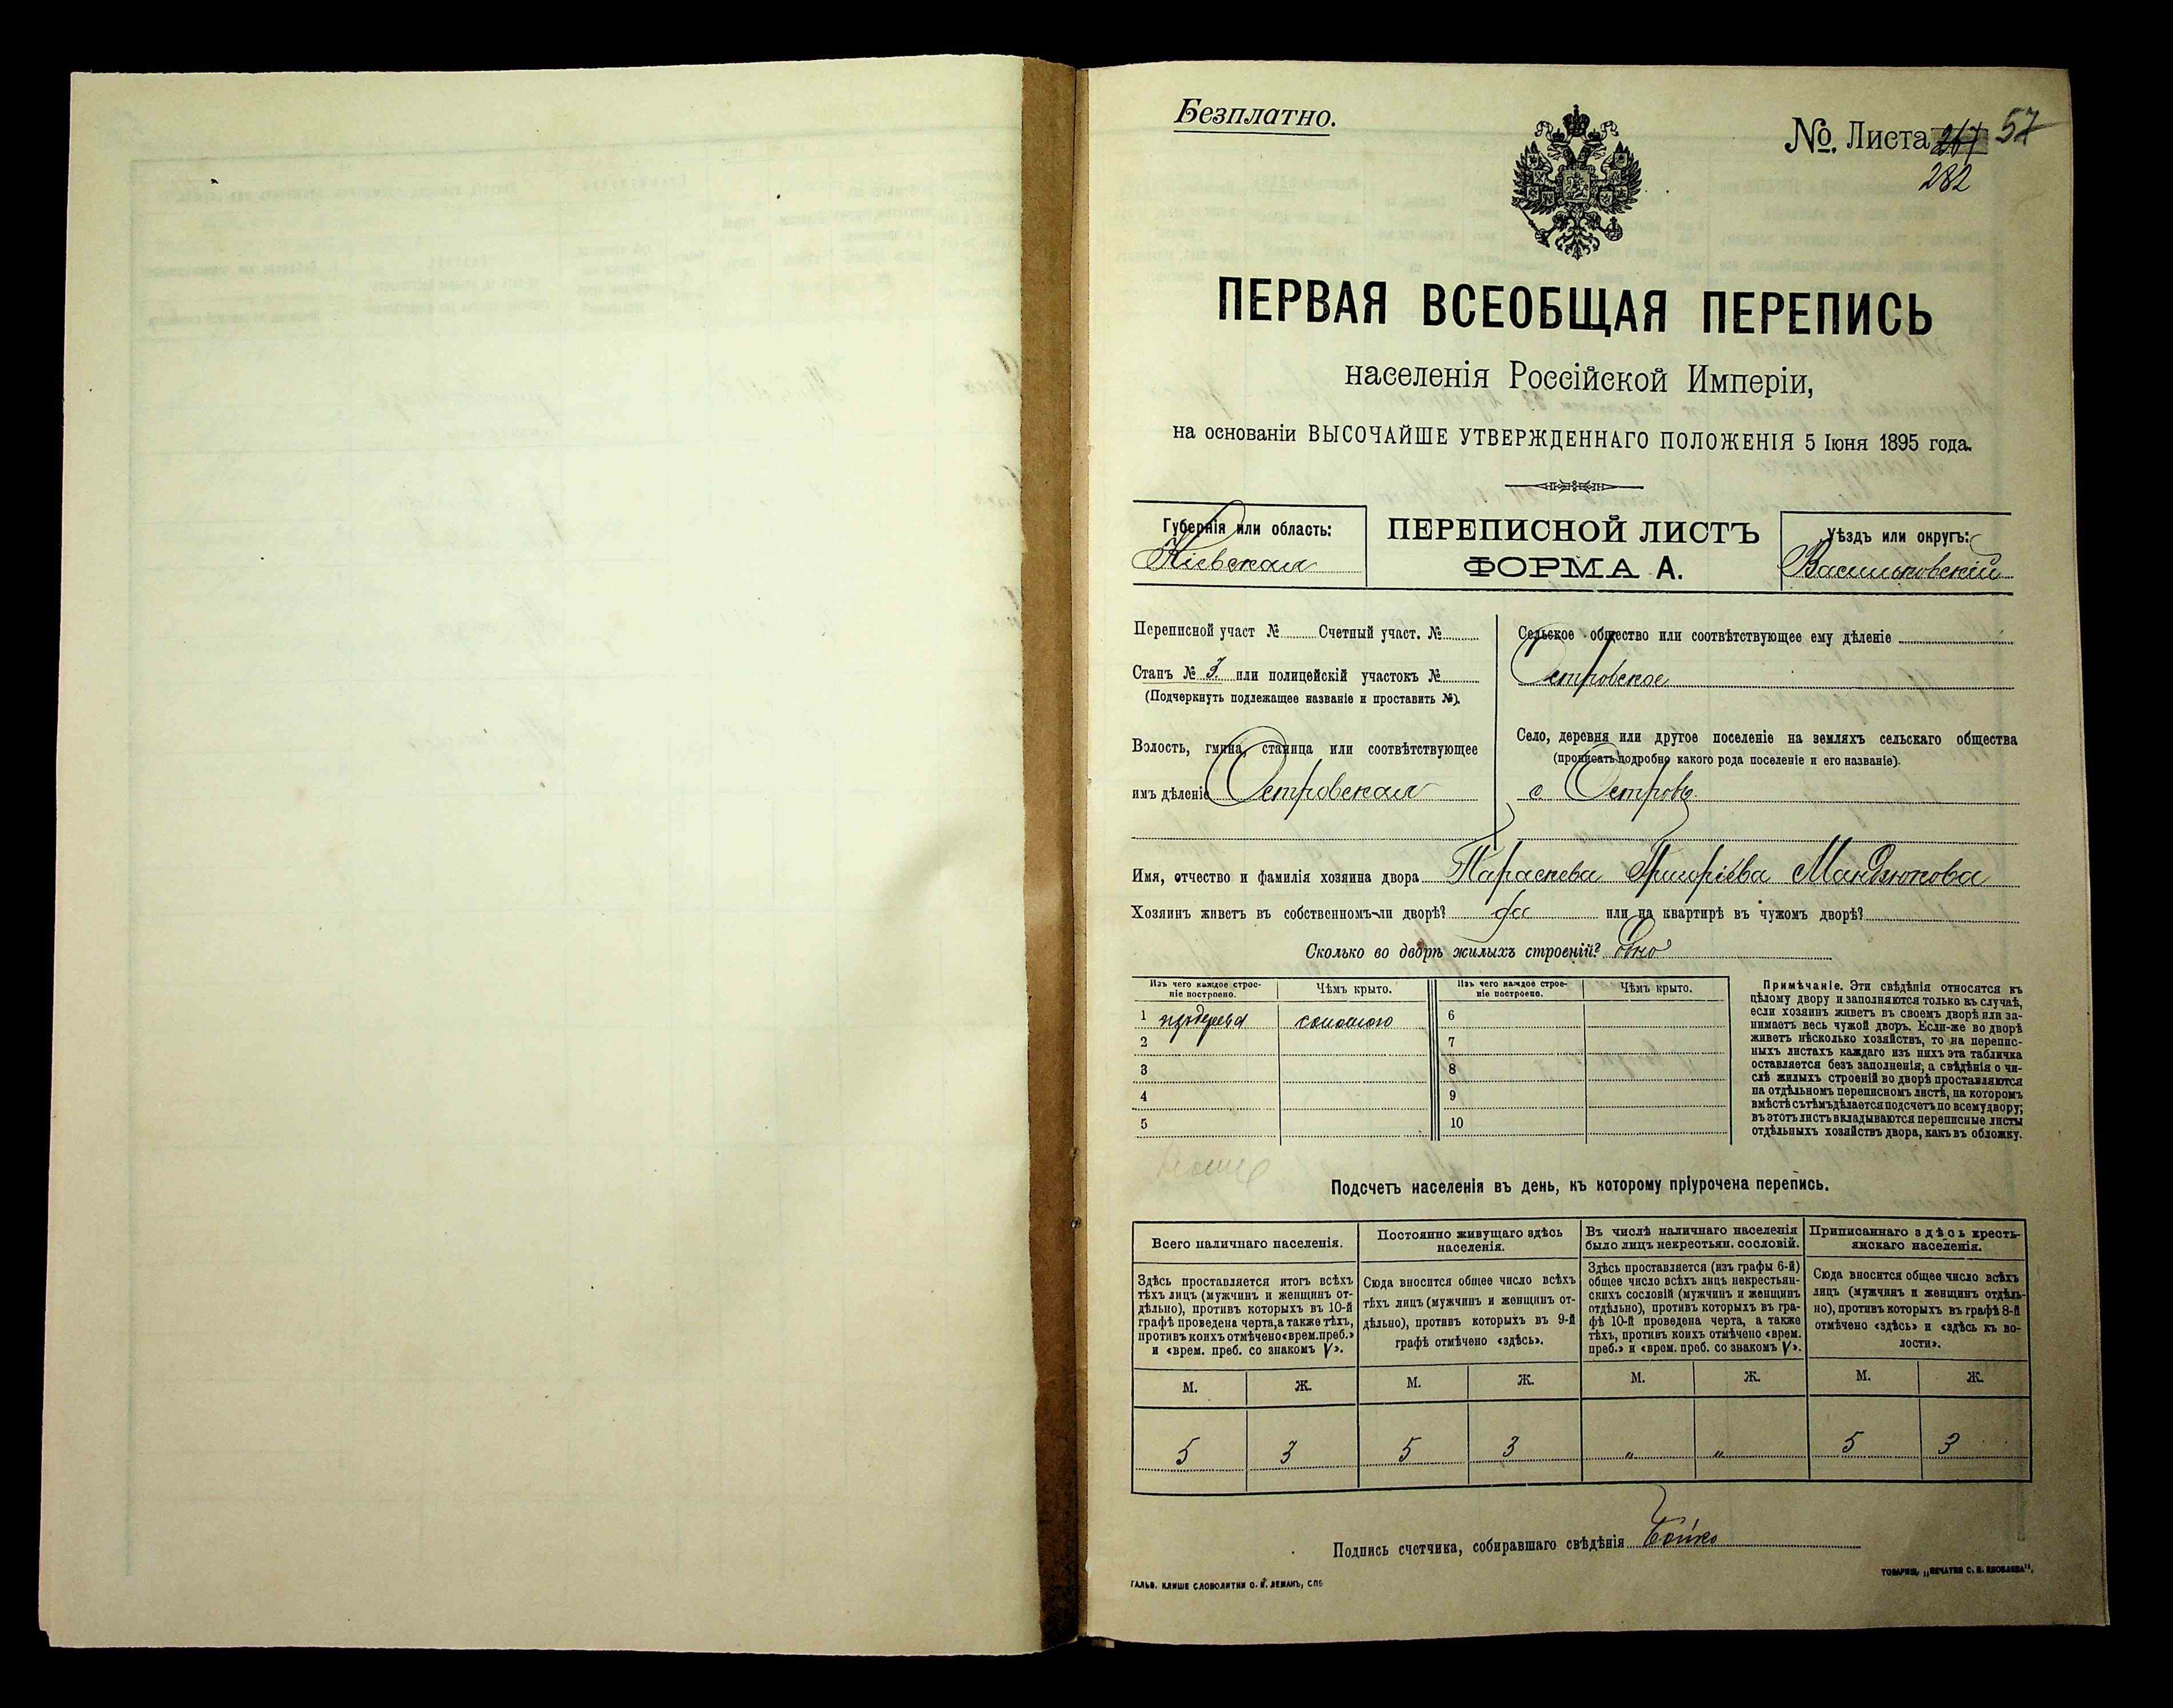 Безплатно.
№. Листа 267 57
282
ПЕРВАЯ ВСЕОБЩАЯ ПЕРЕПИСЬ
населенія Россійской Имперіи,
на основаніи ВЫСОЧАЙШЕ УТВЕРЖДЕННАГО ПОЛОЖЕНІЯ 5 Іюня 1895 года.
Губернія или область:
Кіевская
ПЕРЕПИСНОЙ ЛИСТЪ
ФОРМА А.
Уѣздъ или округъ:
Васильковскій
Переписной участ № Счетный участ. №
Станъ № 3. или полицейскій участокъ №
(Подчеркнуть подлежащее названіе и проставить №).
Волость, гмина, станица или соотвѣтствующее
имъ дѣленіе Островская
Сельское общество или соотвѣтствующее ему дѣленіе
Островское
Село, деревня или другое поселеніе на земляхъ сельскаго общества
(прописать подробно какого рода поселеніе и его названіе).
с. Островъ
Имя, отчество и фамилія хозяина двора Параскева Григоріева Мандзюкова
Хозяинъ живетъ въ собственномъ-ли дворѣ? да или на квартирѣ въ чужомъ дворѣ?
Сколько во дворѣ жилыхъ строеній? одно
Изъ чего каждое строе-
ніе построено.
Чѣмъ крыто.
Изъ чего каждое строе-
ніе построено.
Чѣмъ крыто.
1 изъ дерева соломою 6
2 7
3 8
4 9
5 10
Примѣчаніе. Эти свѣдѣнія относятся къ
цѣлому двору и заполняются только въ случаѣ,
если хозяинъ живетъ въ своемъ дворѣ или за-
нимаетъ весь чужой дворъ. Если-же во дворѣ
живетъ нѣсколько хозяйствъ, то на перепис-
ныхъ листахъ каждаго изъ нихъ эта табличка
оставляется безъ заполненія, а свѣдѣнія о чи-
слѣ жилыхъ строеній во дворѣ проставляются
на отдѣльномъ переписномъ листѣ, на которомъ
вмѣстѣ съ тѣмъ дѣлается подсчетъ по всему двору;
въ этотъ листъ вкладываются переписные листы
отдѣльныхъ хозяйствъ двора, какъ въ обложку.
Подсчетъ населенія въ день, къ которому пріурочена перепись.
Всего наличнаго населенія.
Здѣсь проставляется итогъ всѣхъ
тѣхъ лицъ (мужчинъ и женщинъ от-
дѣльно), противъ которыхъ въ 10-й
графѣ проведена черта, а также тѣхъ,
противъ коихъ отмѣчено «врем. преб.»
и «врем. преб. со знакомъ V».
Постоянно живущаго здѣсь
населенія.
Сюда вносится общее число всѣхъ
тѣхъ лицъ (мужчинъ и женщинъ от-
дѣльно), противъ которыхъ въ 9-й
графѣ отмѣчено «здѣсь».
Въ числѣ наличнаго населенія
было лицъ некрестьян. сословій.
Здѣсь проставляется (изъ графы 6-й)
общее число всѣхъ лицъ некрестьян-
скихъ сословій (мужчинъ и женщинъ
отдѣльно), противъ которыхъ въ гра-
фѣ 10-й проведена черта, а также
тѣхъ, противъ коихъ отмѣчено «врем.
преб.» и «врем. преб. со знакомъ V».
Приписаннаго здѣсь кресть-
янскаго населенія.
Сюда вносится общее число всѣхъ
лицъ (мужчинъ и женщинъ отдѣль-
но), противъ которыхъ въ графѣ 8-й
отмѣчено «здѣсь» и «здѣсь къ во-
лости».
М. Ж. М. Ж. М. Ж. М. Ж.
5 3 5 3 „ „ 5 3
Подпись счетчика, собиравшаго свѣдѣнія Бойко
ГАЛЬВ. КЛИШЕ СЛОВОЛИТНИ О. И. ЛЕМАНЪ, СПБ
ТОВАРИЩ. „ПЕЧАТНЯ С. П. ЯКОВЛЕВА",